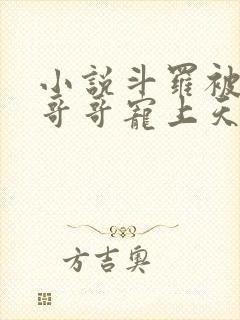 小說斗羅被
哥哥寵上天
方吉奧